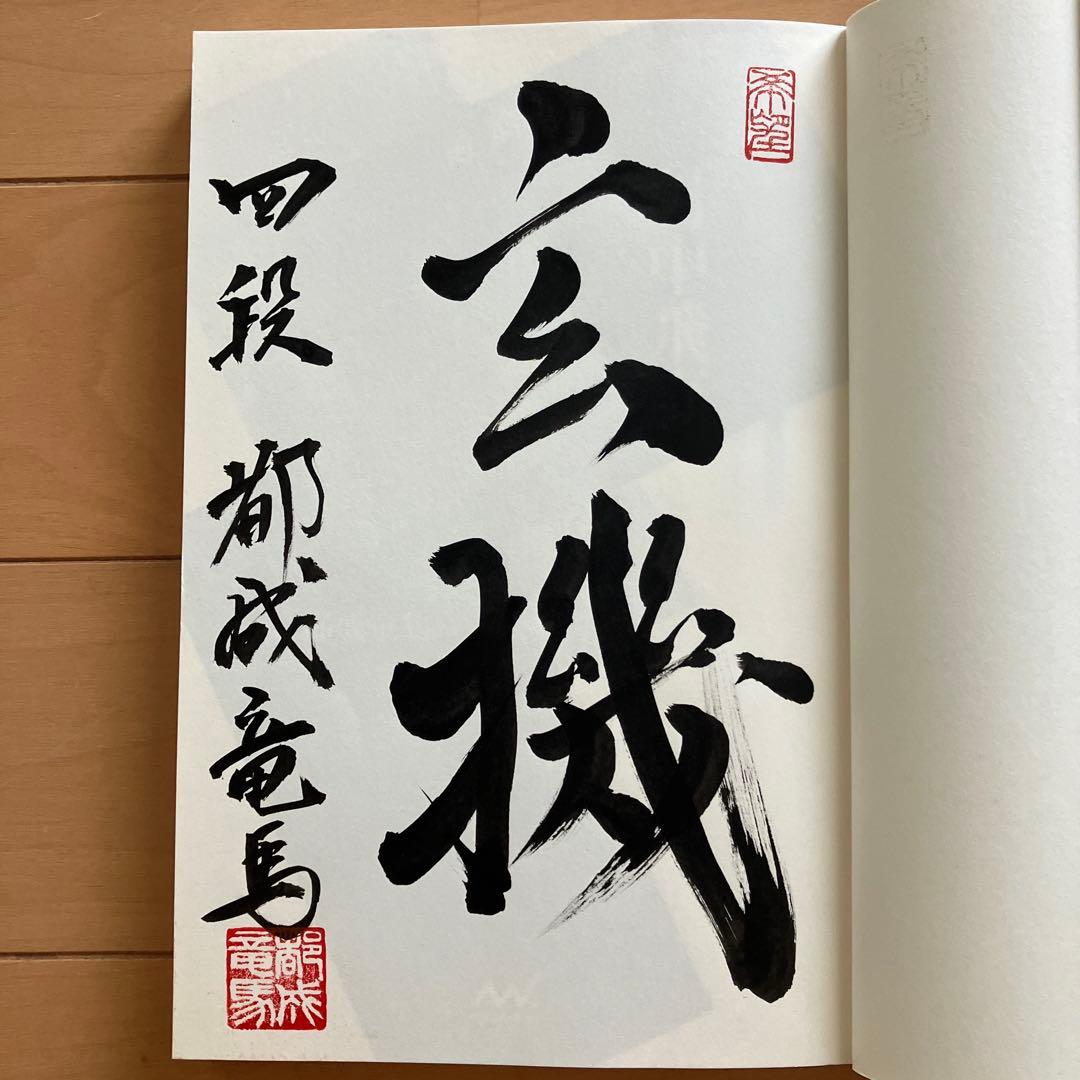 希望
玄機
四段 都成竜馬
都成
竜馬